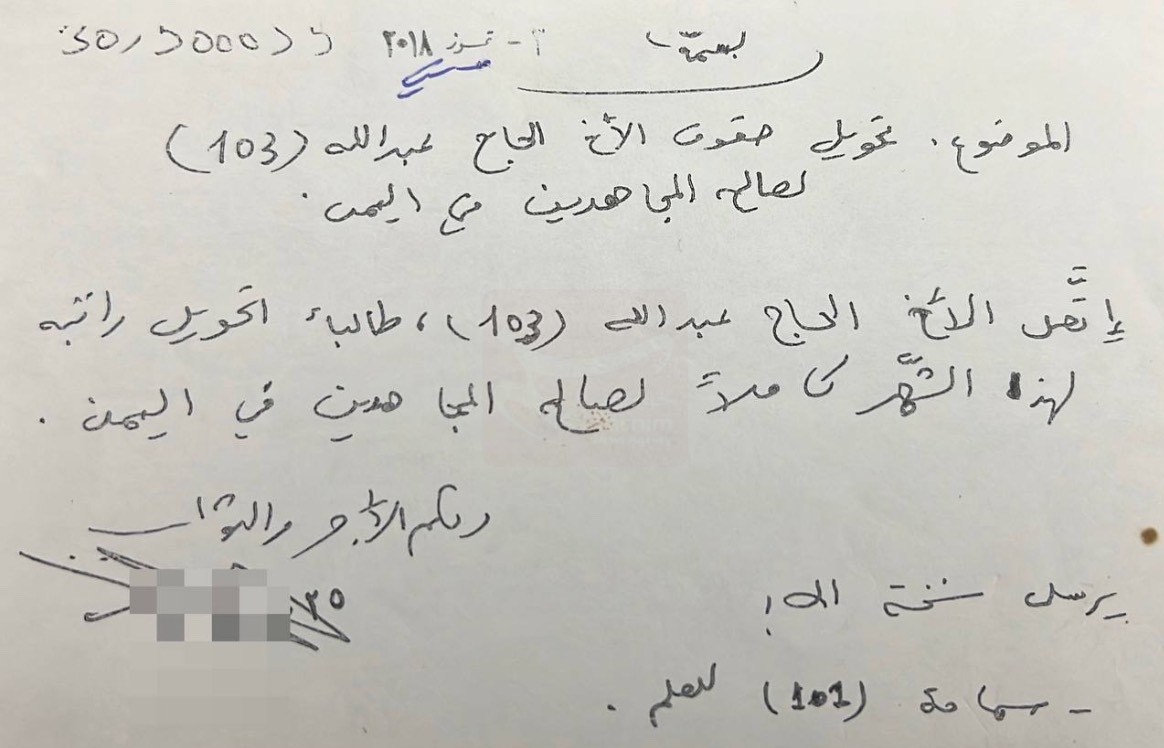 بسمه تعالى
٣ - تموز ٢٠١٨
الموضوع. تحويل حقوق الأخ الحاج عبدالله (103)
لصالح المجاهدين في اليمن.
إتَّصل الأخ الحاج عبدالله (103)، طالباً تحويل راتبه
لهذا الشّهر كاملاً لصالح المجاهدين في اليمن.
ولكم الأجر والثواب
٢٥
يرسل نسخة الى:
- سماحة (101) للعلم.